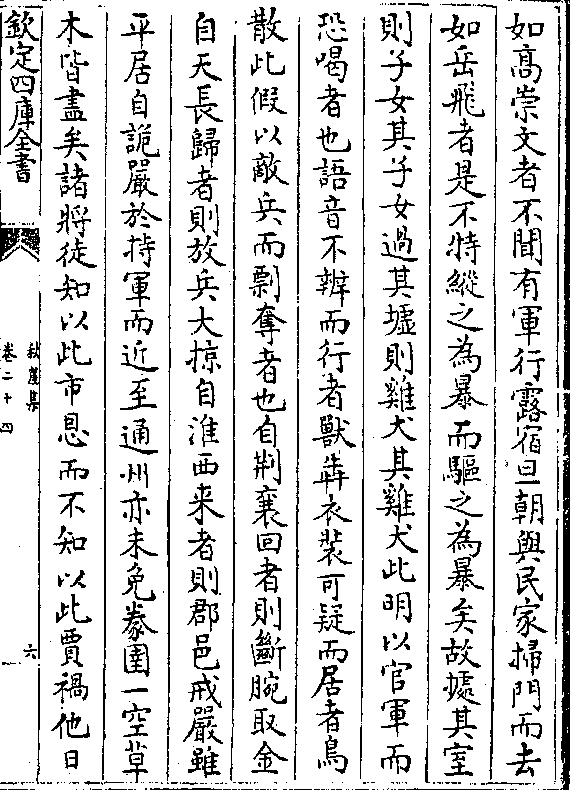 如高崇文者不聞有軍行露宿旦朝與民家掃門而去
如岳飛者是不特縱之為暴而驅之為暴矣故墟其室
則子女其子女過其墟則雞犬其雞犬此明以官軍而
恐喝者也語音不辨而行者獸犇衣裝可疑而居者鳥
散此假以敵兵而剽奪者也自荆襄回者則斷腕取金
自天長歸者則放兵大掠自淮西来者則郡邑戒嚴雖
平居自詭嚴於持軍而近至通州亦未免豢圉一空草
木皆盡矣諸將徒知以此市恩而不知以此賈禍他日
欽定四庫全書
秋崖集
卷二十四
六